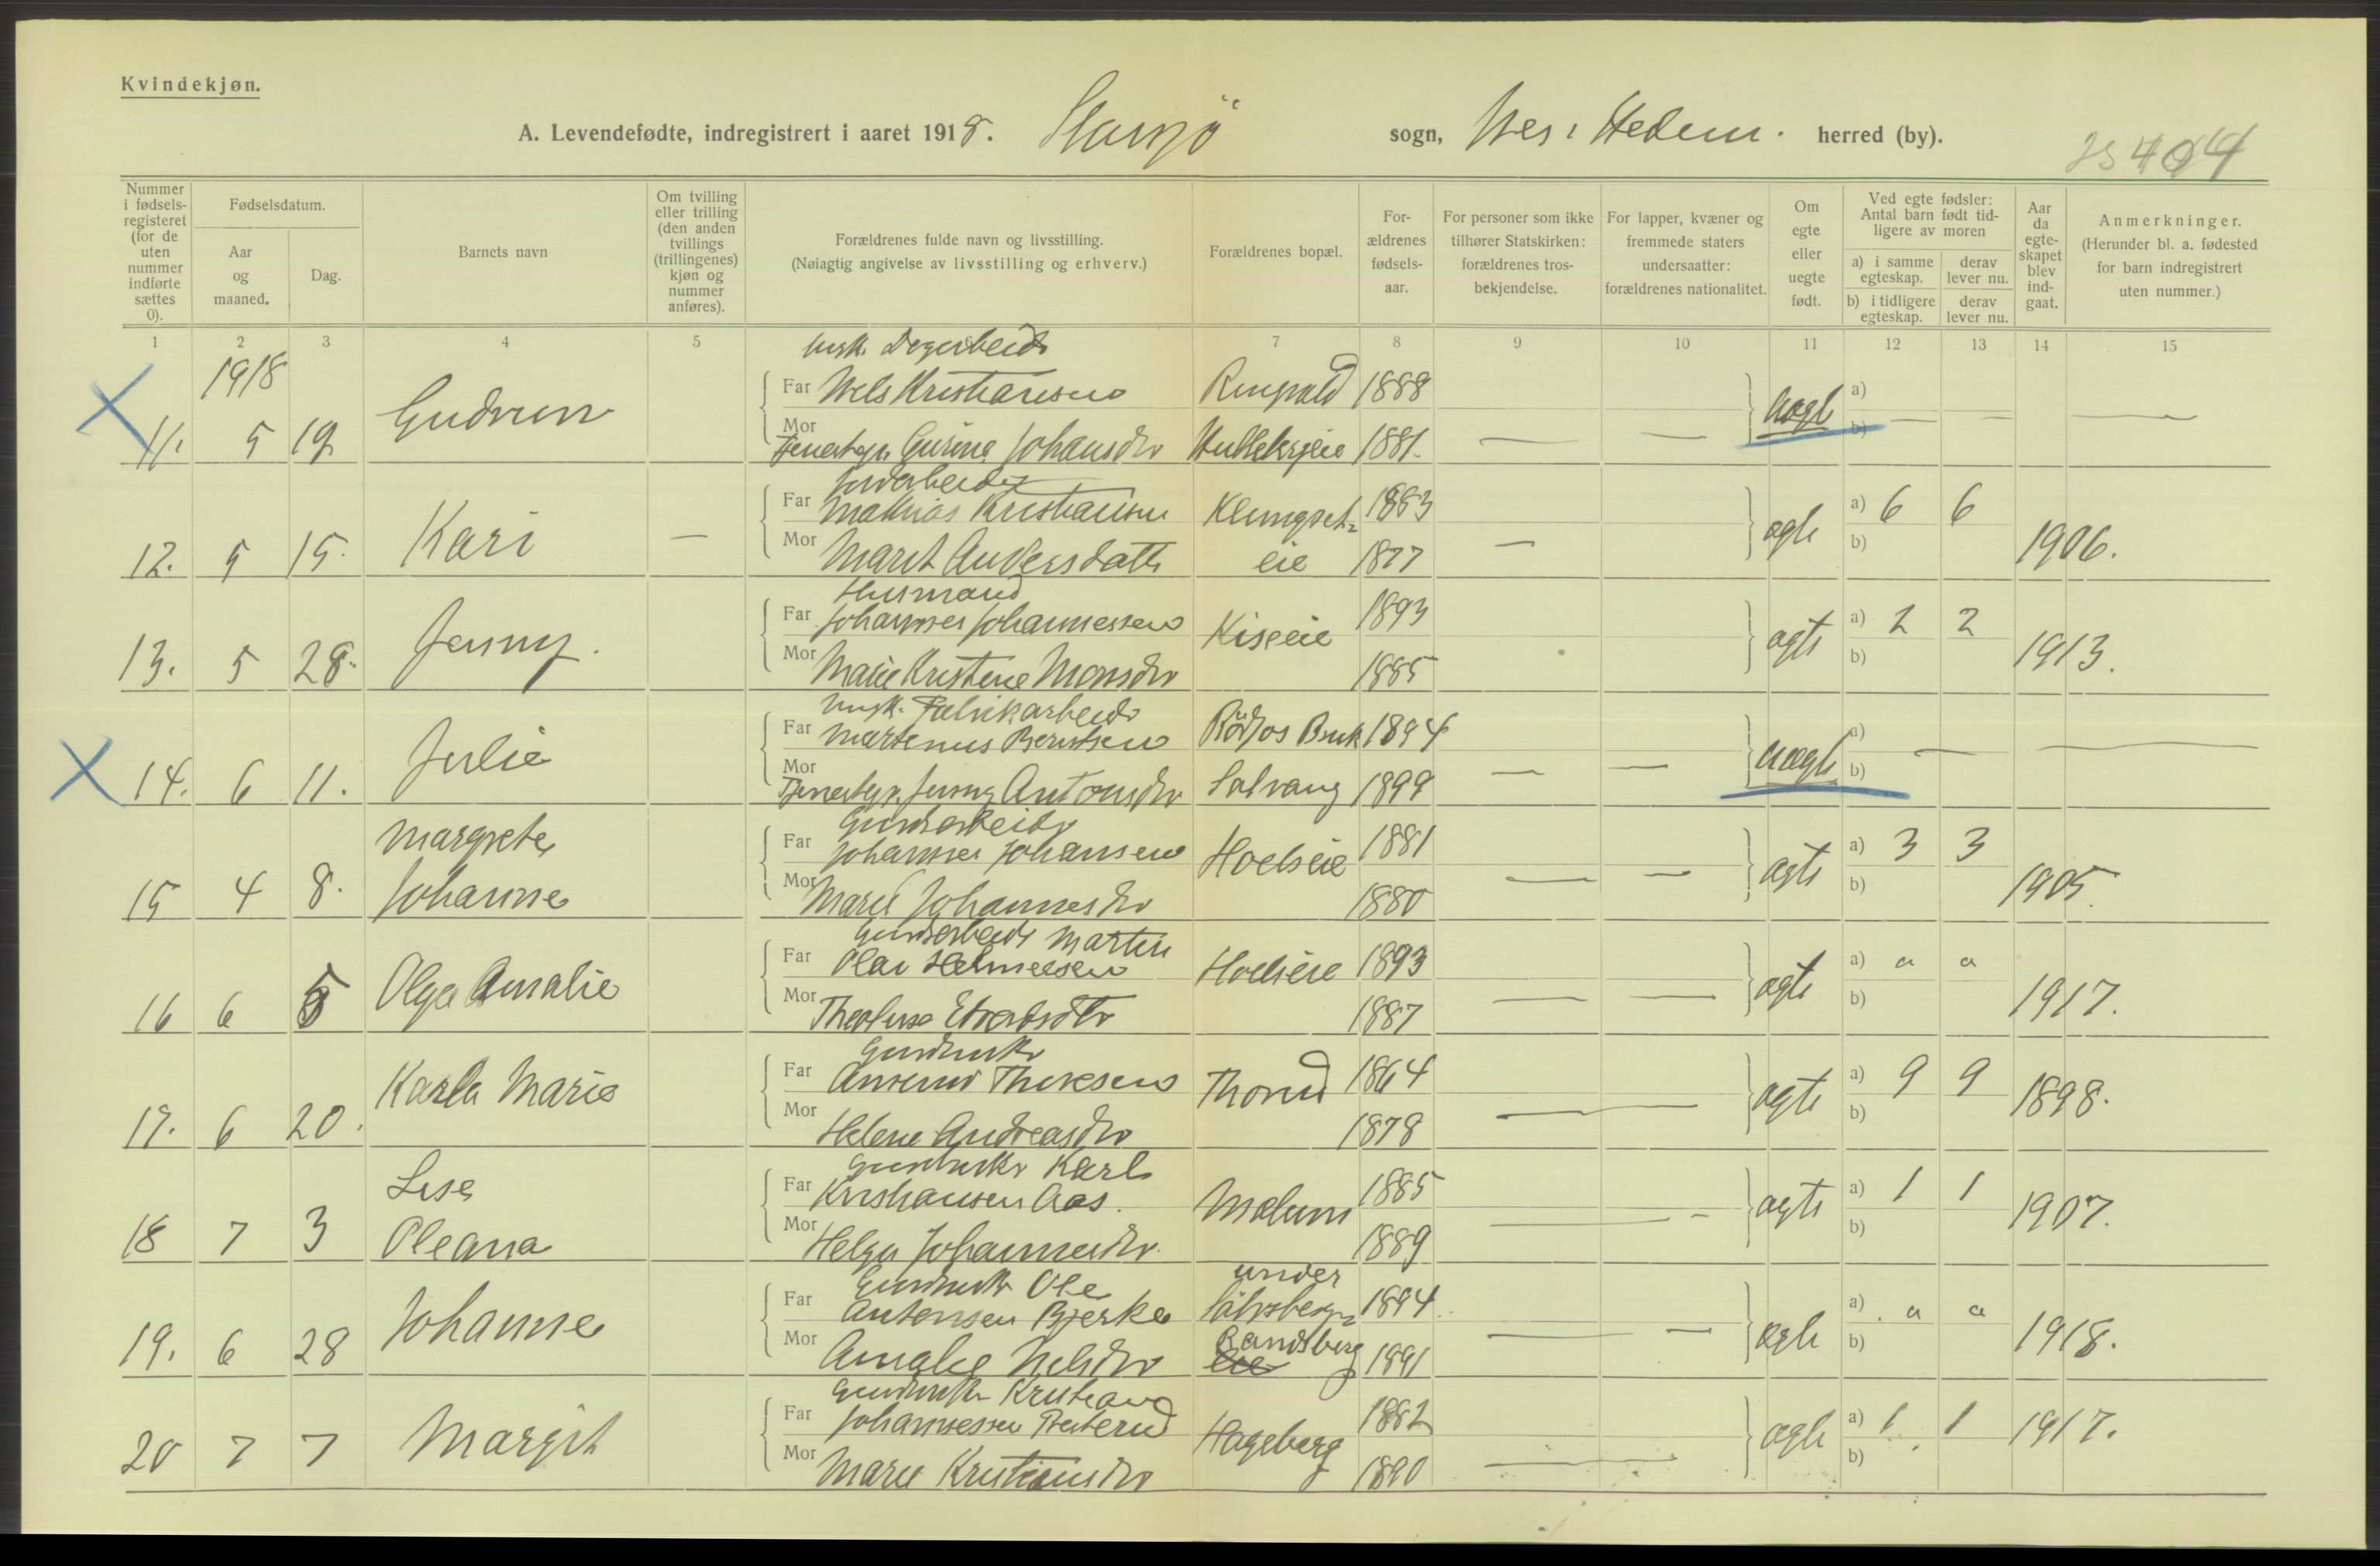 Kvindekjøn.
A. Levendefødte, indregistrert i aaret 1918. sogn, Nes i Hedem. herred (by).
Nummer i fødsels-registeret (for de uten nummer indførte sættes 0).
Fødselsdatum.
Aar og maaned.
Dag.
Barnets navn
Om tvilling eller trilling (den anden tvillings (trillingenes) kjøn og nummer anføres).
Forældrenes fulde navn og livsstilling.
(Nøiagtig angivelse av livsstilling og erhverv.)
Forældrenes bopæl.
For-ældrenes fødsels-aar.
For personer som ikke tilhører Statskirken: forældrenes tros-bekjendelse.
For lapper, kvæner og fremmede staters undersaatter: forældrenes nationalitet.
Om egte eller uegte født.
Ved egte fødsler: Antal barn født tid-ligere av moren
a) i samme egteskap.
derav lever nu.
b) i tidligere egteskap.
derav lever nu.
Aar da egte-skapet blev ind-gaat.
Anmerkninger.
(Herunder bl. a. fødested for barn indregistrert uten nummer.)
1 2 3 4 5 6 7 8 9 10 11 12 13 14 15
1918
Far Nels Kristiansen 1888
11. 5 19 Gudrun
Mor Johansdtr 1881. uegte a) b)
Jordarbeider
Far Mathias Kristiansen 1883
12. 5 15. Kari — Mor Marit Andersdatter eie 1877 — egte a) 6 6 b) 1906.
Husmand
Far Johannes Johannessen Kiseeie 1893
13. 5 28. Jenny. Mor Marie Kristine Monsdtr 1885 egte a) 2 2 b) 1913.
Far Martinus Berntsen 1894
14. 6 11. Julie
Mor Jenny Antonsdtr Solvang 1899 — — uegte a) b) —
Gaardarbeider
Far Johannes Johansen Hoelseie 1881
15 4 8. Margrete Johanne
Mor Marie Johannesdtr 1880 — — egte a) 3 3 b) 1905.
Gaardarbeider Martin
Far Olav Helmersen Hoelseie 1893
16 6 5 Olga Amalie
Mor 1887 — — egte a) o o b) 1917.
Gaardbruker
Far Thoresen Thorud 1864
17. 6 20. Karla Marie
Mor Helene Andreasdtr 1878 — egte a) 9 9 b) 1898.
Gaardbruker Karl
Far Kristiansen Aas. Mælum 1885
18 7 3 Lise Oleana
Mor Helga Johannesdtr. 1889 — egte a) 1 1 b) 1907.
Gaardbruker Ole under
Far Antonsen Bjerke 1894
19. 6 28 Johanne
Mor Amalie Nelsdtr Randsberg 1891 — — egte a) o o b) 1918.
Gaardbruker Kristian
Far Johannessen Hageberg 1882
20 7 7 Margit
Mor Marie Kristiansdtr 1890 — egte a) 1 1 b) 1917.